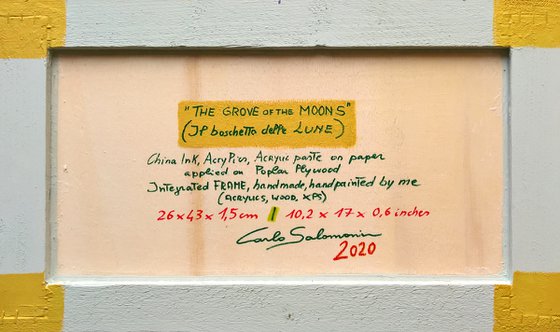 "THE GROVE OF THE MOONS"
(Il boschetto delle LUNE)
China Ink, Acry Pen, Acrylic paste on paper
applied on Poplar Plywood
Integrated FRAME, handmade, handpainted by me
(ACRYLICS, WOOD, XPS)
26x43x1,5 cm / 10,2 x 17 x 0,6 inches
Carlo Salomoni
2020